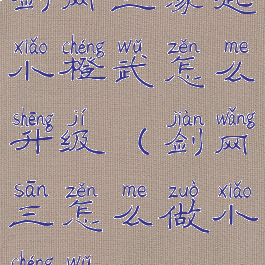 xiǎo chéng wǔ zěn me
小 橙 武 怎 么
shēng jí jiàn wǎng
升 级 （ 剑 网
sān zěn me zuò xiǎo
三 怎 么 做 小
chéng wǔ